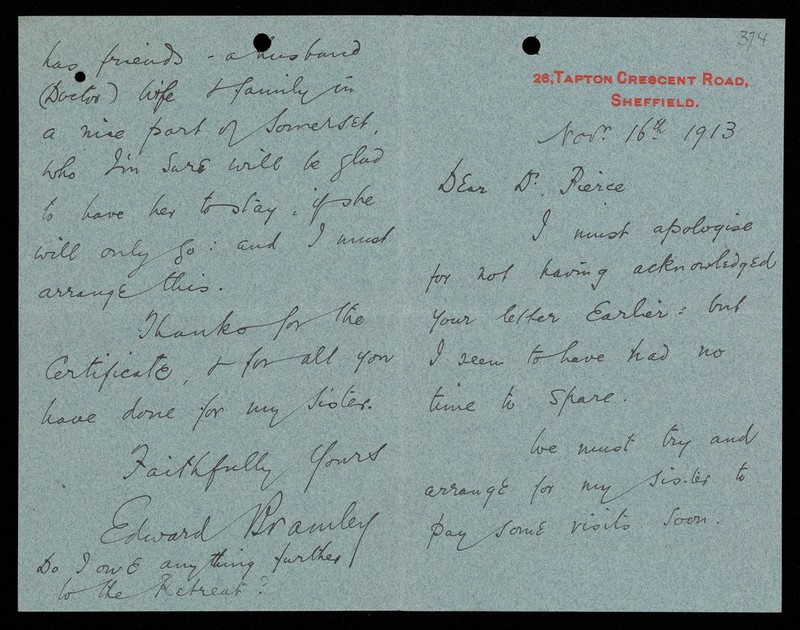 374
26, TAPTON CRESCENT ROAD,
SHEFFIELD.
Novr. 16th 1913
Dear Dr. Pierce
I must apologise
for not having acknowledged
your letter Earlier: but
I seem to have had no
time to spare.
We must try and
arrange for my sister to
pay some visits soon.
has friends - a husband
(Doctor) wife & family in
a nice part of Somerset,
who I'm sure will be glad
to have her to stay, if she
will only go: and I must
arrange this.
Thanks for the
Certificate, & for all you
have done for my sister.
Faithfully Yours
Edward Bramley
Do I owe anything further
to the Retreat?